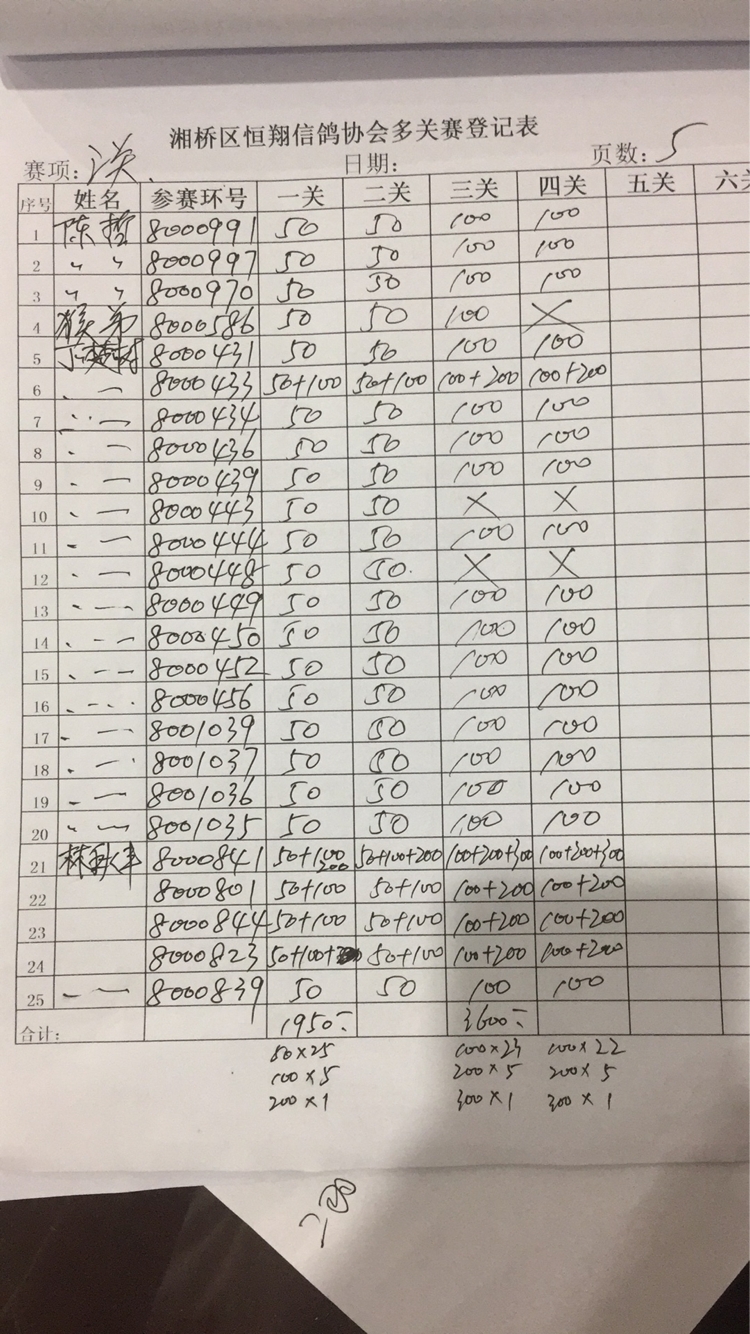 湘桥区恒翔信鸽协会多关赛登记表
赛项: 日期: 页数: 5
序号 姓名 参赛环号 一关 二关 三关 四关 五关 六关
1 陈哲 8000991 50 50 100 100
2 〃 〃 8000997 50 50 100 100
3 〃 〃 8000970 50 50 100 100
4 猴弟 8000586 50 50 100 ×
5 8000431 50 50 100 100
6 8000433 50+100 50+100 100+200 100+200
7 8000434 50 50 100 100
8 8000436 50 50 100 100
9 8000439 50 50 100 100
10 8000443 50 50 × ×
11 8000444 50 50 100 100
12 8000448 50 50. × ×
13 8000449 50 50 100 100
14 8000450 50 50 100 100
15 8000452 50 50 100 100
16 8000456 50 50 100 100
17 8001039 50 50 100 100
18 8001037 50 50 100 100
19 8001036 50 50 100 100
20 8001035 50 50 100 100
21 8000841 50+100 200 50+100+200 100+200+300 100+200+300
22 8000801 50+100 50+100 100+200 100+200
23 8000844 50+100 50+100 100+200 100+200
24 8000823 50+100+ 50+100 100+200 100+200
25 8000839 50 50 100 100
合计: 1950 3600
50×25 100×23 100×22
100×5 200×5 200×5
200×1 300×1 300×1